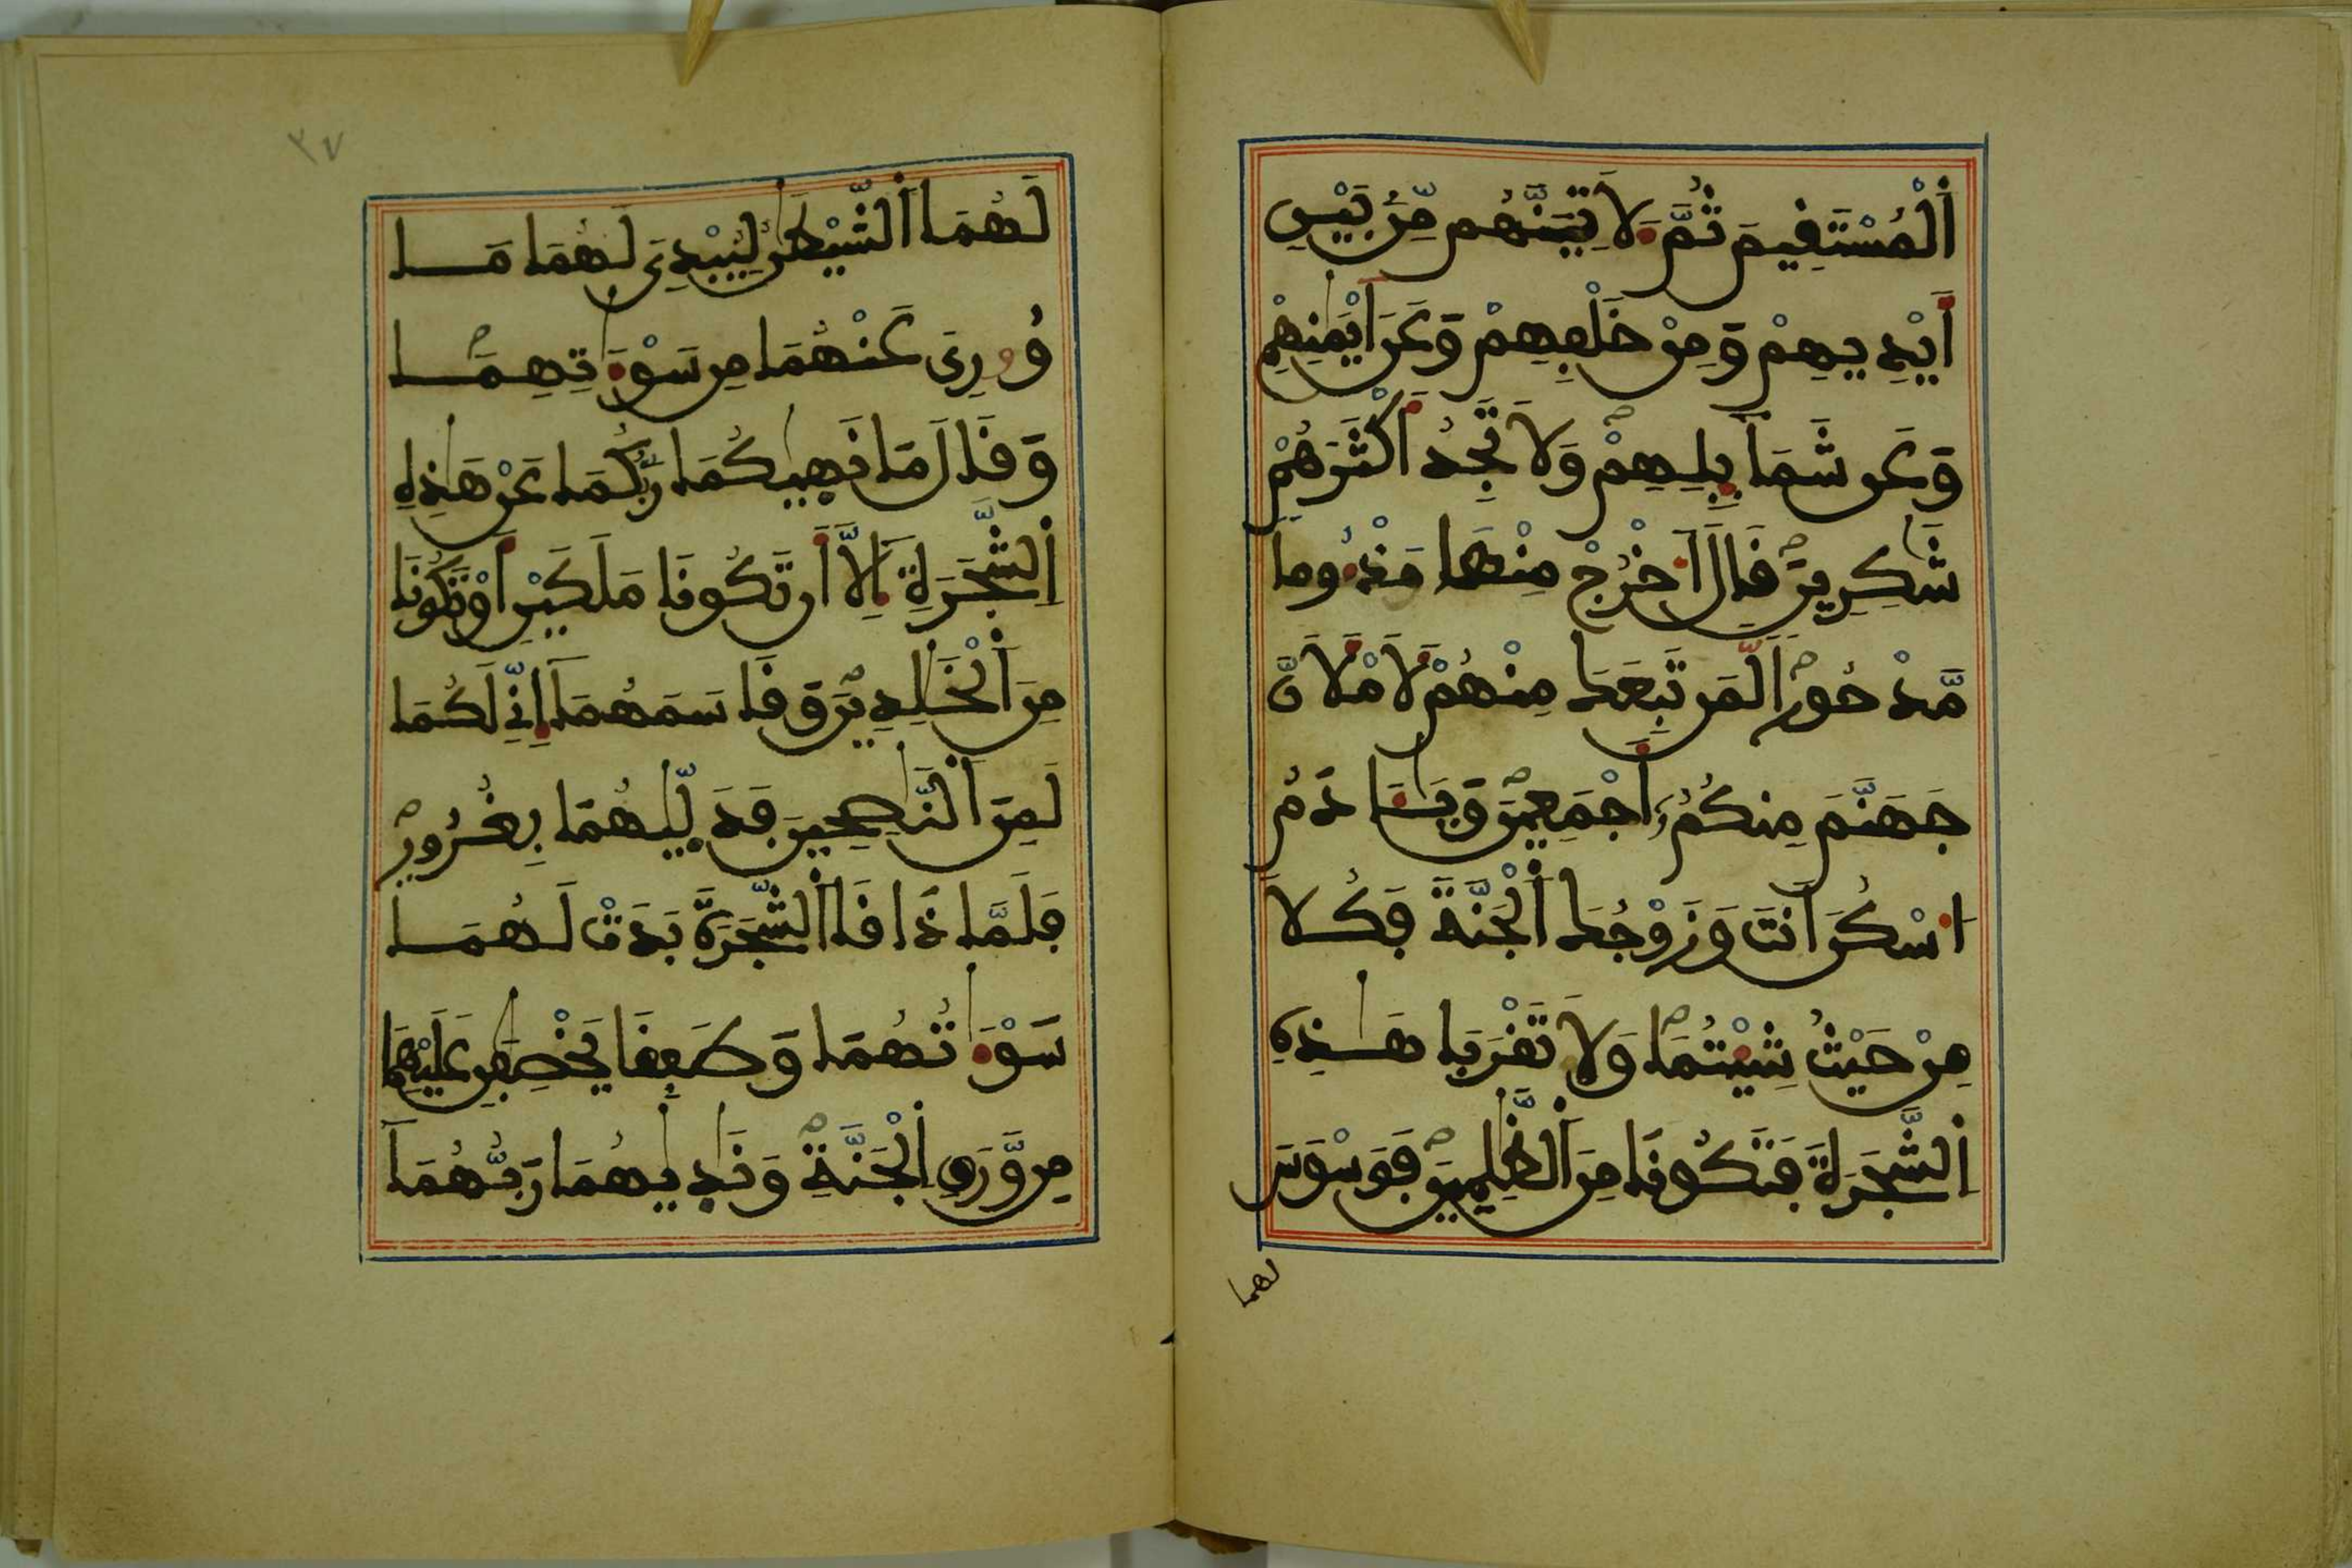 اَ۬لْمُسْتَفِيمَ ثُمَّ ءَلاَتِيَنَّهُم مِّنۢ بَيْنِ
أَيْدِيهِمْ وَمِنْ خَلْفِهِمْ وَعَنَ اَيْمَٰنِهِمْ
وَعَن شَمَآئِلِهِمْ وَلاَ تَجِدُ أَكْثَرَهُمْ
شَٰكِرِينَ فَالَ اَ۟خْرُجْ مِنْهَا مَذْءُوما
مَّدْحُوراَ لَّمَن تَبِعَكَ مِنْهُمْ لَأَمْلَأَنَّ
جَهَنَّمَ مِنكُمُۥٓ أَجْمَعِينَ وَيَٰٓـَٔادَمُ
اُ۟سْكُنَ اَنتَ وَزَوْجُكَ اَ۬لْجَنَّةَ فَكُلاَ
مِنْ حَيْثُ شِئْتُمَا وَلاَ تَفْرَبَا هَٰذِهِ
اِ۬لشَّجَرَةَ فَتَكُونَا مِنَ اَ۬لظَّٰلِمِينَ فَوَسْوَسَ
لهما
٣٧
لَهُمَا اَ۬لشَّيْطَٰنُ لِيُبْدِيَ لَهُمَا مَا
وُۥرِيَ عَنْهُمَا مِن سَوْءَٰتِهِمَا
وَفَالَ مَا نَهَيٰكُمَا رَبُّكُمَا عَنْ هَٰذِهِ
اِ۬لشَّجَرَةِ إِلَّآ أَن تَكُونَا مَلَكَيْنِ أَوْ تَكُونَا
مِنَ اَ۬لْخَٰلِدِينَ وَفَاسَمَهُمَآ إِنِّے لَكُمَا
لَمِنَ اَ۬لنَّٰصِحِينَ فَدَلَّيٰهُمَا بِغُرُورٍ
فَلَمَّا ذَافَا اَ۬لشَّجَرَةَ بَدَتْ لَهُمَا
سَوْءَٰتُهُمَا وَطَفِفَا يَخْصِفَٰنِ عَلَيْهِمَا
مِنْ وَّرَقِ اِ۬لْجَنَّةِ وَنَادَيٰهُمَا رَبُّهُمَآ